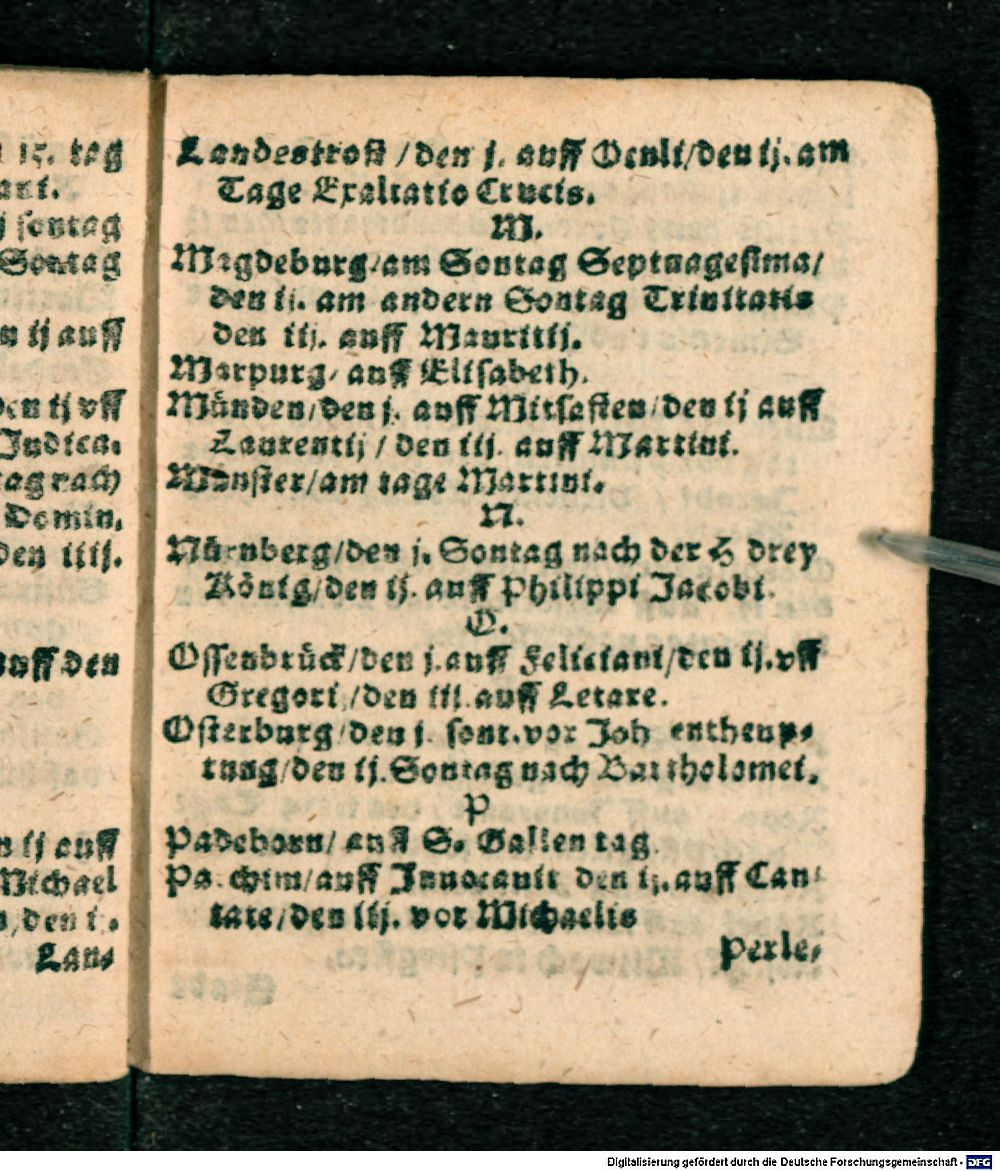 iz. tag
ani.
j sontag
Sontag
n ij auff
den ij vff
Judica.
tag nach
Domin.
den iiij.
auff den
n ij auff
Michael
Lan-
Landestrost / den j. auff Oculi/den ij. am
Tage Exaltatio Crucis.
M.
Magdeburg/am Sontag Septuagesima/
den ij. am andern Sontag Trinitatis
den iij. auff Mauritij.
Marpurg/ auff Elisabeth.
Münden/den j. auff Mitfasten/den ij auff
Laurentij / den iij. auff Martini.
Münster/am tage Martini.
N.
Nürnberg/den j. Sontag nach der H drey
König/den ij. auff Philippi Jacobi.
O.
Ossenbrück/den j.auff Feliciani/den ij.vff
Gregori /den iij.auff Letare.
Osterburg/den j. sont.vor Joh entheup-
tung/den ij.Sontag nach Bartholomei.
P
Padeborn/ auff S. Gallen tag.
Pa.chim/auff Innocauit den ij.auff Can-
tate/den iij. vor Michaelis
Perle-
Digitalisierung gefördert durch die Deutsche Forschungsgemeinschaft - DFG